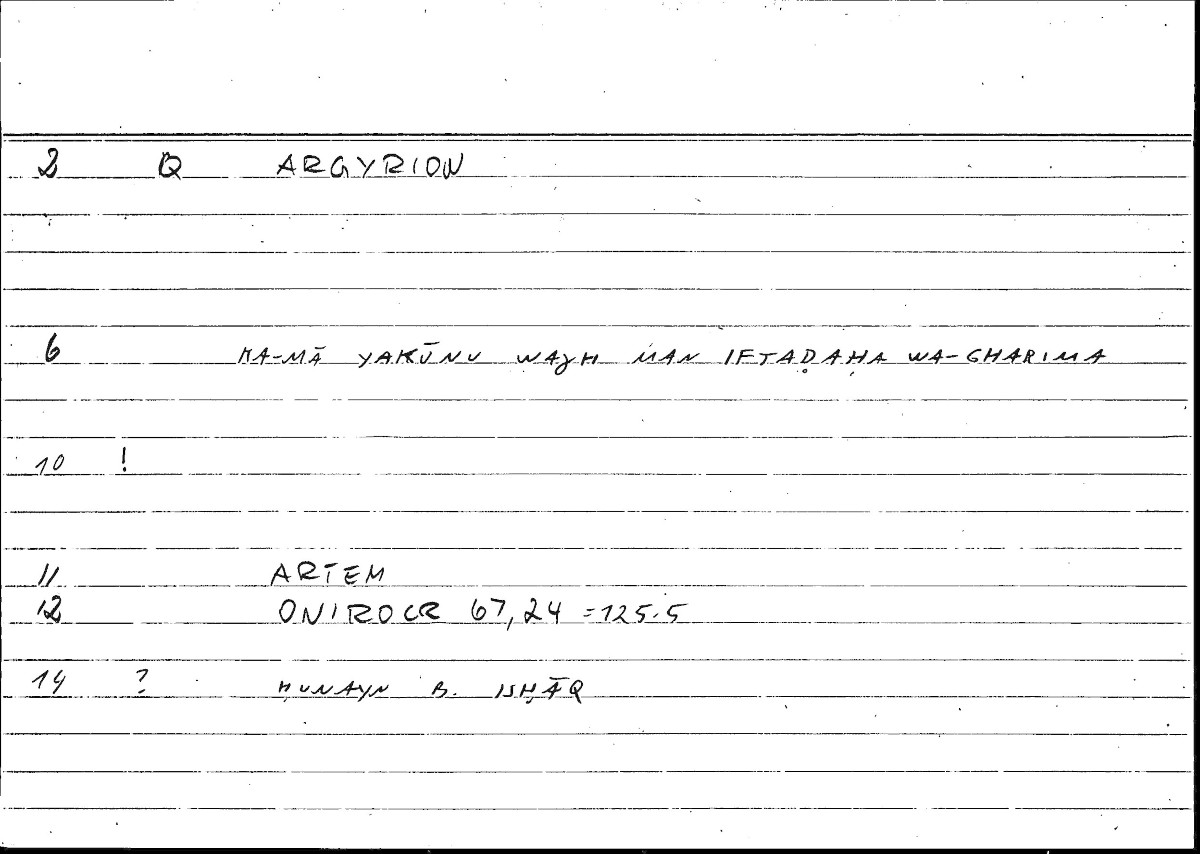 2 Q ARGYRION
6 KA-MĀ YAKŪNU WAJH MAN IFTAḌAḤA WA-GHARIMA
10 !
11 ARTEM
12 ONIROCR 67,24 =125.5
14 ? ḤUNAYN B. ISḤĀQ